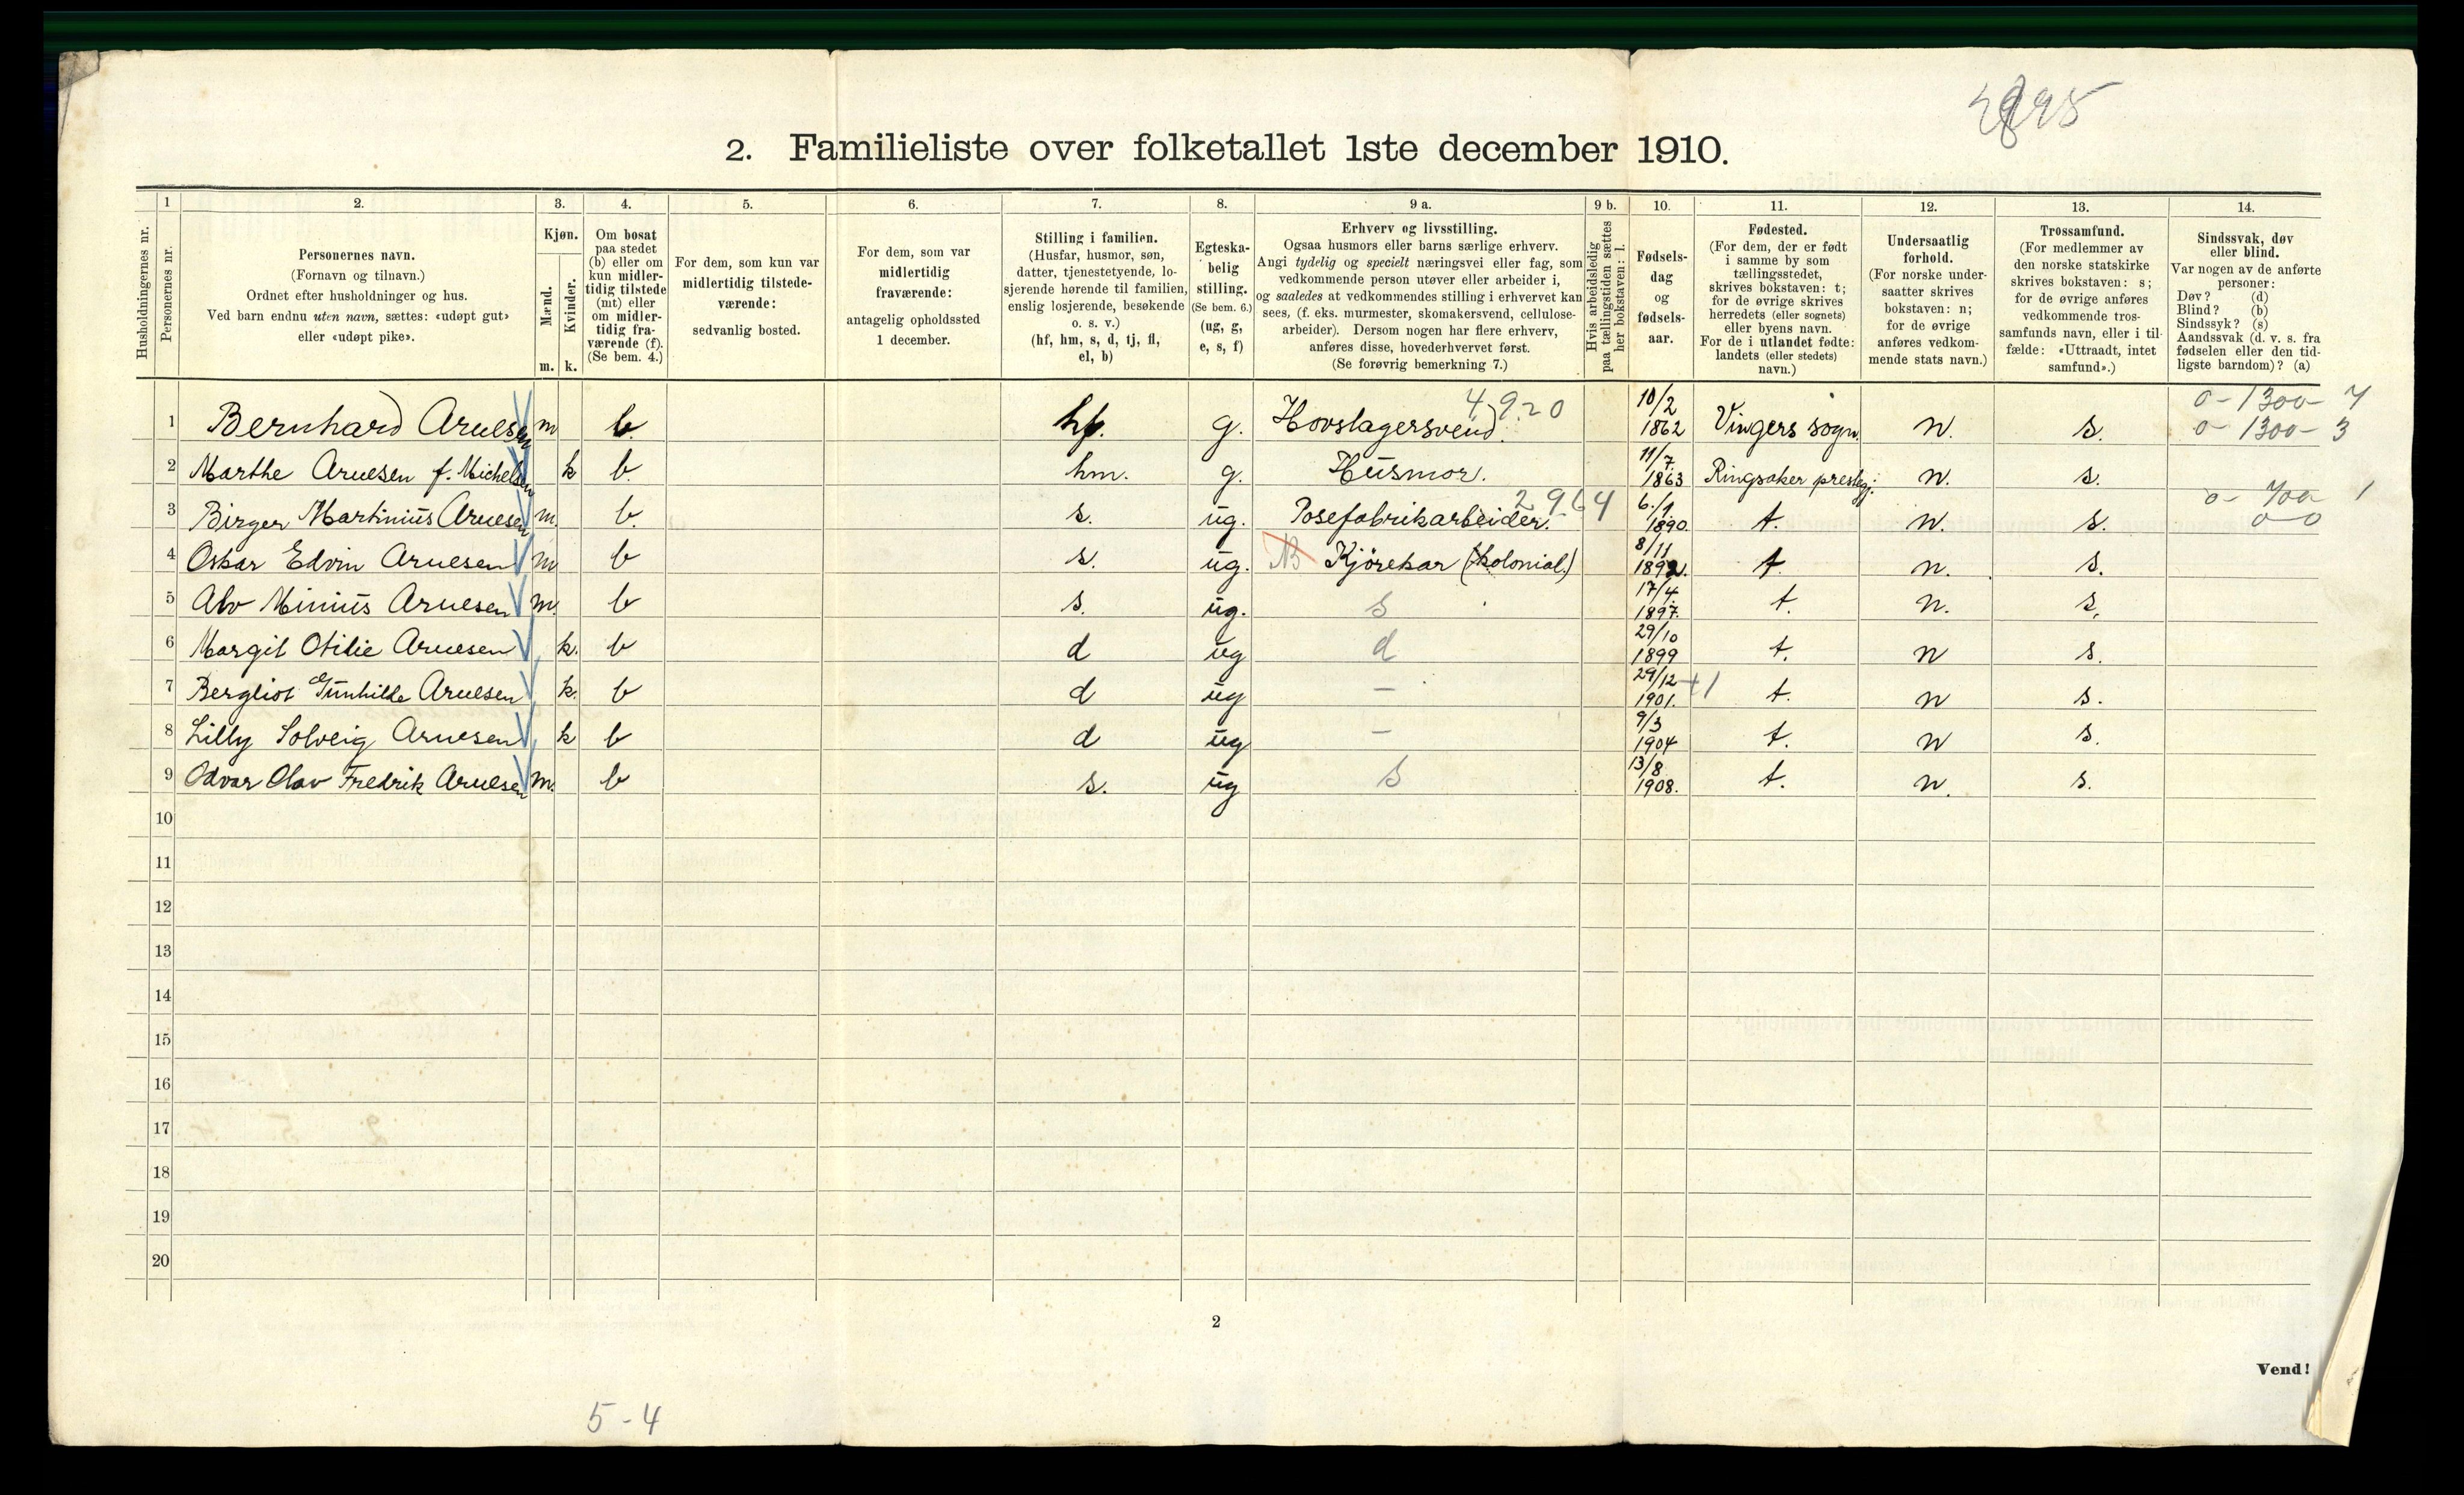 2895
2. Familieliste over folketallet 1ste december 1910.
Husholdningernes nr.
1 Personernes nr.
2. Personernes navn. (Fornavn og tilnavn.) Ordnet efter husholdninger og hus. Ved barn endnu uten navn, sættes: «udøpt gut» eller «udøpt pike».
3. Kjøn. Mænd. m. Kvinder. k.
4. Om bosat paa stedet (b) eller om kun midlertidig tilstede (mt) eller om midlertidig fraværende (f). (Se bem. 4.)
5. For dem, som kun var midlertidig tilstedeværende: sedvanlig bosted.
6. For dem, som var midlertidig fraværende: antagelig opholdssted 1 december.
7. Stilling i familien. (Husfar, husmor, søn, datter, tjenestetyende, losjerende hørende til familien, enslig losjerende, besøkende o. s. v.) (hf, hm, s, d, tj, fl, el, b)
8. Egteskabelig stilling. (Se bem. 6.) (ug, g, e, s, f)
9 a. Erhverv og livsstilling. Ogsaa husmors eller barns særlige erhverv. Angi tydelig og specielt næringsvei eller fag, som vedkommende person utøver eller arbeider i, og saaledes at vedkommendes stilling i erhvervet kan sees, (f. eks. murmester, skomakersvend, cellulosearbeider). Dersom nogen har flere erhverv, anføres disse, hovederhvervet først. (Se forøvrig bemerkning 7.)
9 b. Hvis arbeidsledig paa tællingstiden sættes her bokstaven: l.
10. Fødselsdag og fødselsaar.
11. Fødested. (For dem, der er født i samme by som tællingsstedet, skrives bokstaven: t; for de øvrige skrives herredets (eller sognets) eller byens navn. For de i utlandet fødte: landets (eller stedets) navn.)
12. Undersaatlig forhold. (For norske undersaatter skrives bokstaven: n; for de øvrige anføres vedkommende stats navn.)
13. Trossamfund. (For medlemmer av den norske statskirke skrives bokstaven: s; for de øvrige anføres vedkommende trossamfunds navn, eller i tilfælde: «Uttraadt, intet samfund».)
14. Sindssvak, døv eller blind. Var nogen av de anførte personer: Døv? (d) Blind? (b) Sindssyk? (s) Aandssvak (d. v. s. fra fødselen eller den tidligste barndom)? (a)
1 Bernhard Arnesen m b. hf. g. Hovslagersvend. 4920 10/2 1862 Vingers sogn. n. s. 0-1300- 4
0-1300- 3
2 Marthe Arnesen f. Michelsen k b. hm. g. Husmor. 11/7 1863 Ringsaker prestegj. n. s.
3 Birger Martinius Arnesen m. b. s. ug. Posefabrikarbeider. 2964 6/1 1890. t. n. s. 0- 700 1
0-0
4 Oskar Edvin Arnesen m b s. ug. NB Kjörekar (kolonial.) 8/11 1892. t. n. s.
5 Alv Minius Arnesen m. b s. ug. s 17/4 1897. t. n. s.
6 Margit Otilie Arnesen k. b d ug d 29/10 1899 t. n s.
7 Bergliot Gunhilde Arnesen k. b d ug - 29/12 1901. +1 t. n s.
8 Lilly Solveig Arnesen k b d ug - 9/3 1904 t. n s.
9 Odvar Olav Fredrik Arnesen m. b s. ug s 13/8 1908. t. n. s.
10
11
12
13
14
15
16
17
18
19
20
2
Vend!
5-4